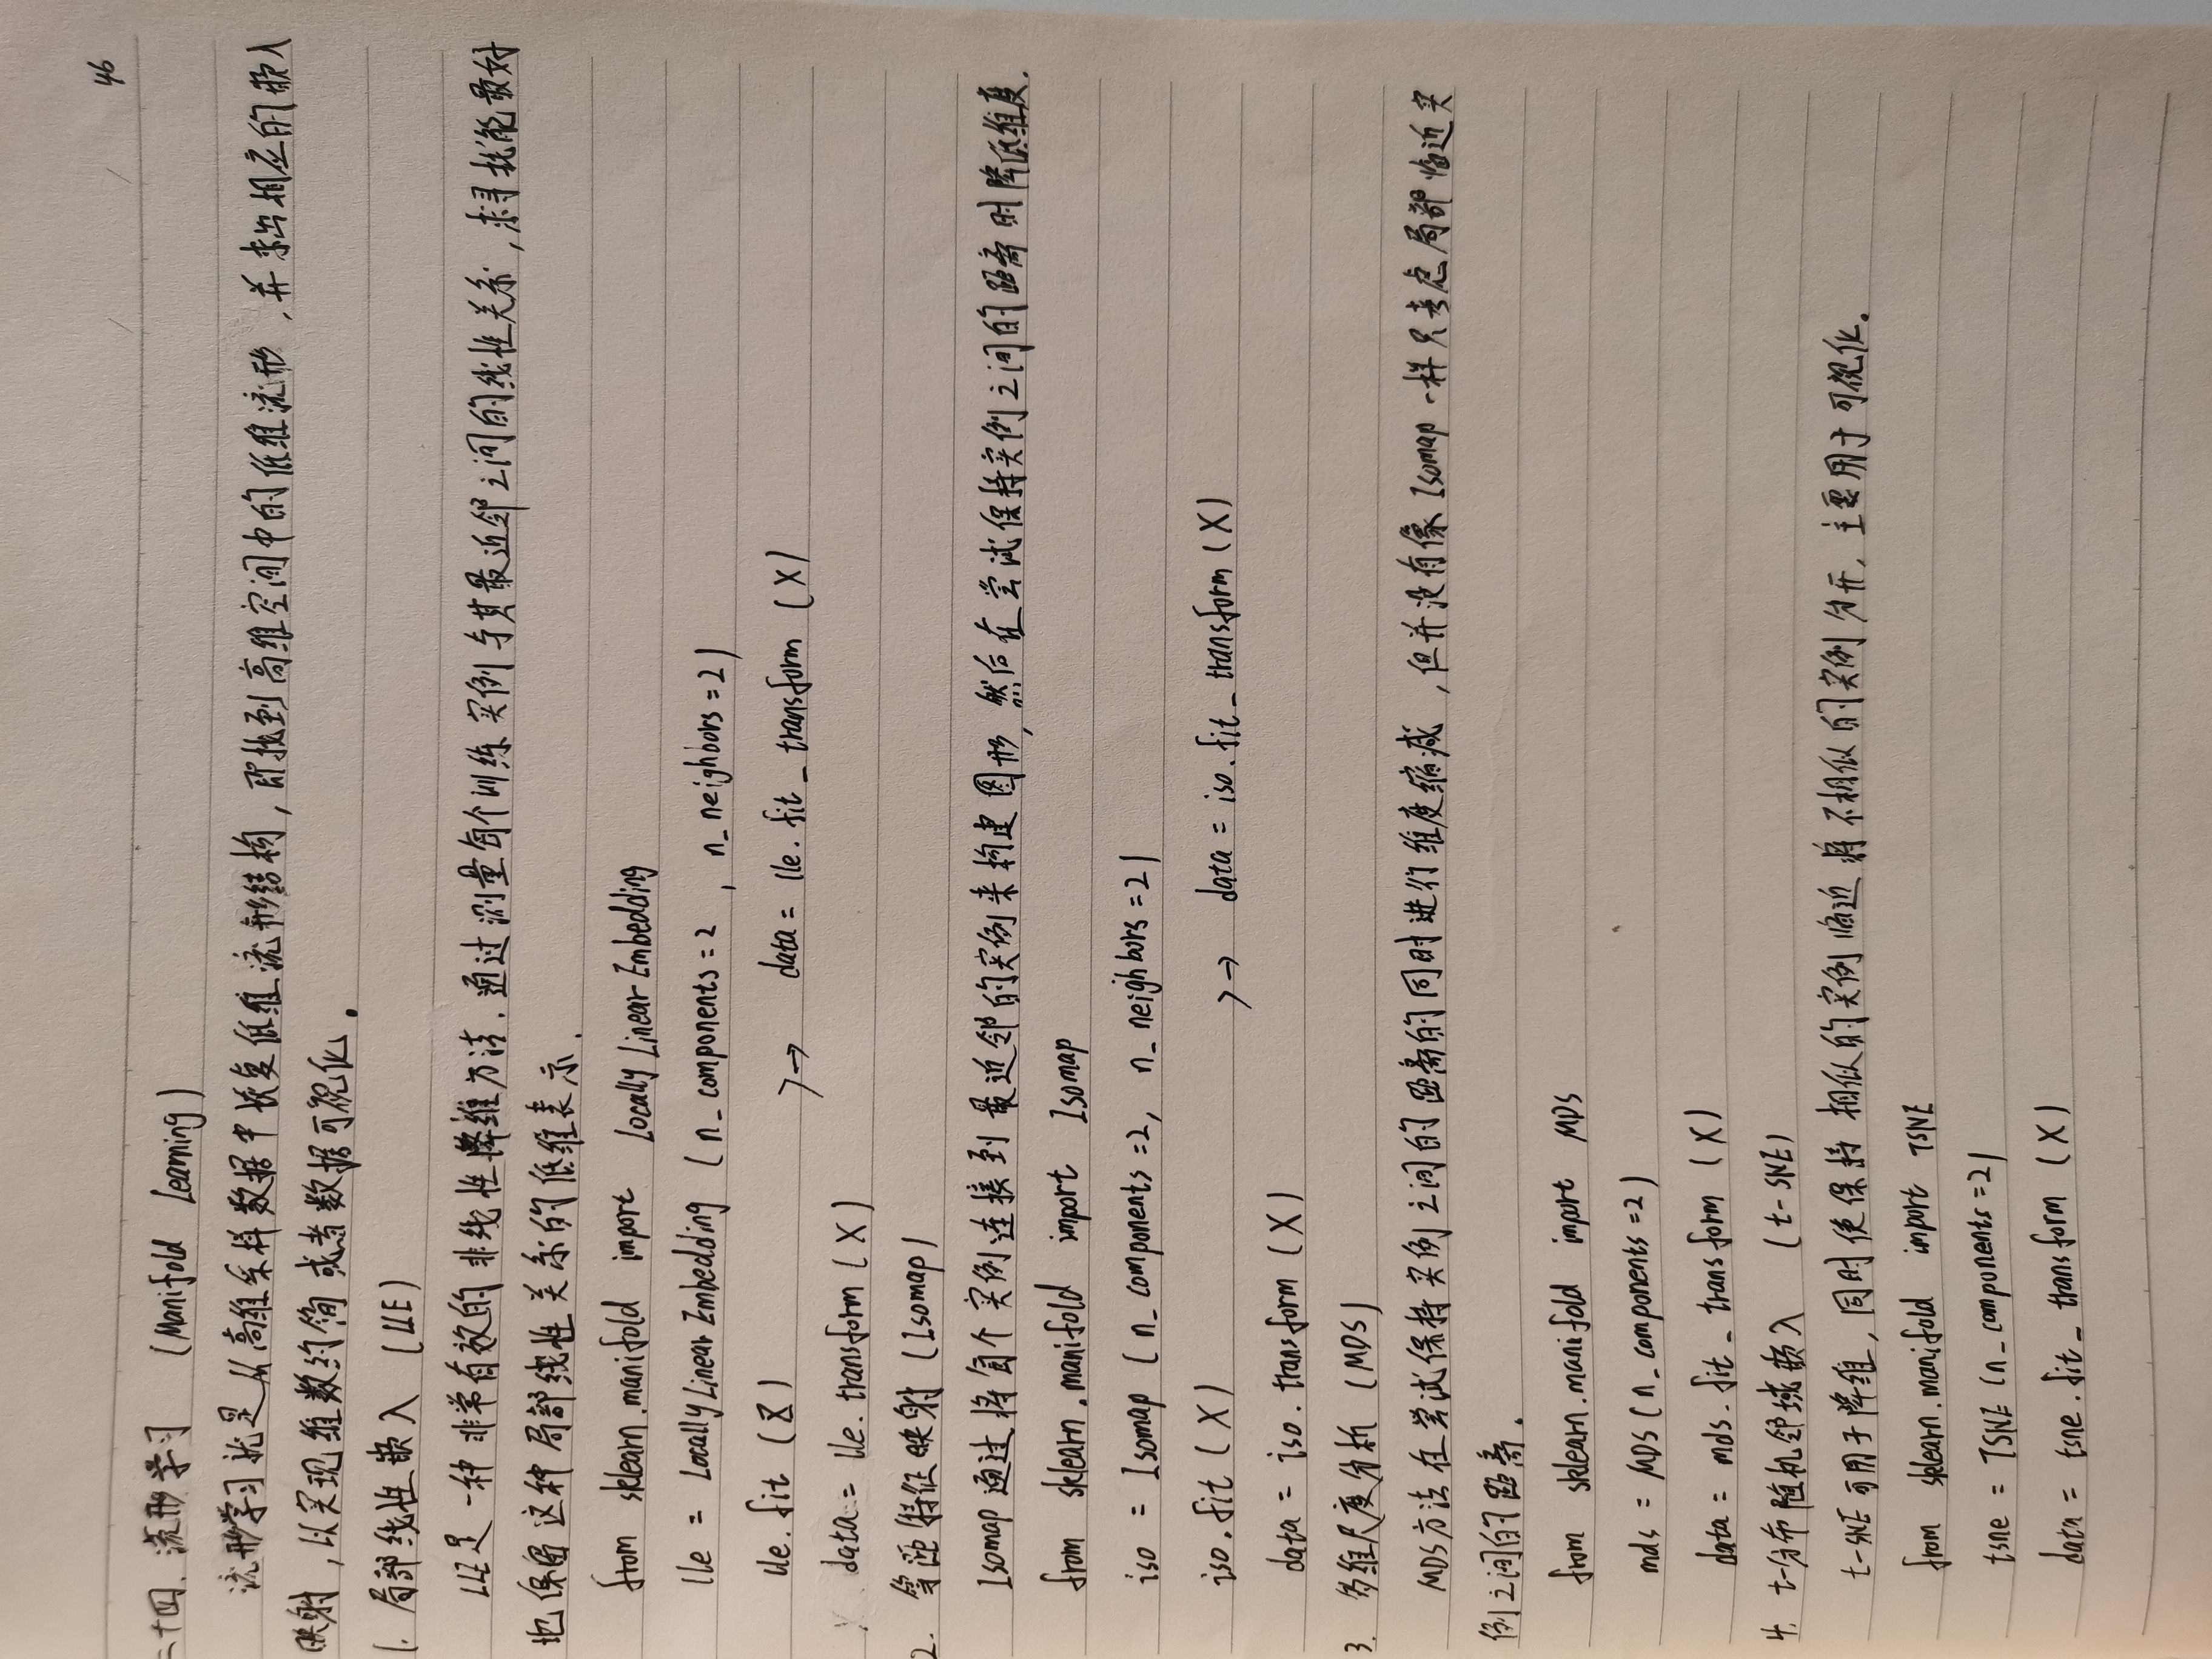 46
二十四、流形学习 (Manifold Learning)
流形学习就是从高维采样数据中恢复低维流形结构,即找到高维空间中的低维流形,并求出相应的嵌入
映射,以实现维数约简或者数据可视化。
1. 局部线性嵌入 (LLE)
LLE是一种非常有效的非线性降维方法,通过测量每个训练实例与其最近邻之间的线性关系,来寻找能最好
地保留这种局部线性关系的低维表示.
from sklearn.manifold import Locally Linear Embedding
lle = Locally Linear Embedding (n_components=2, n_neighbors=2)
lle.fit (X) >→ data = lle.fit_transform (X)
data = lle.transform (X)
2. 等距特征映射 (Isomap)
Isomap 通过将每个实例连接到最近邻的实例来构建图形,然后在尝试保持实例之间的距离时降低维度.
from sklearn.manifold import Isomap
iso = Isomap (n_components=2, n_neighbors=2)
iso.fit (X) >→ data = iso.fit_transform (X)
data = iso.transform (X)
3. 多维尺度分析 (MDS)
MDS方法在尝试保持实例之间的距离的同时进行维度缩减,但并没有像Isomap一样只考虑局部临近实
例之间的距离.
from sklearn.manifold import MDS
mds = MDS (n_components=2)
data = mds.fit_transform (X)
4. t-分布随机邻域嵌入 (t-SNE)
t-SNE可用于降维,同时使保持相似的实例临近,将不相似的实例分开,主要用于可视化.
from sklearn.manifold import TSNE
tsne = TSNE (n_components=2)
data = tsne.fit_transform (X)